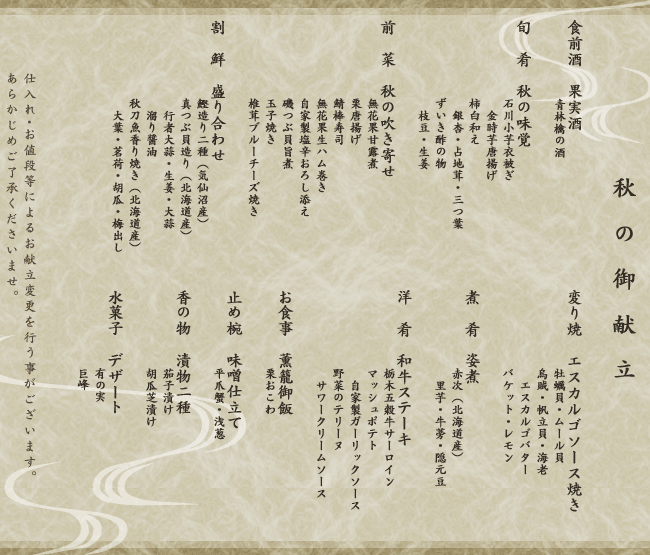 秋の御献立
食前酒　果実酒
青林檎の酒
旬肴　秋の味覚
石川小芋衣被ぎ
金時芋唐揚げ
柿白和え
銀杏・占地茸・三つ葉
ずいき酢の物
枝豆・生姜
前菜　秋の吹き寄せ
無花果甘露煮
栗唐揚げ
鯖棒寿司
無花果生ハム巻き
自家製塩辛おろし添え
磯つぶ貝旨煮
玉子焼き
椎茸ブルーチーズ焼き
割鮮　盛り合わせ
鰹造り二種（気仙沼産）
真つぶ貝造り（北海道産）
行者大蒜・生姜・大蒜
溜り醤油
秋刀魚香り焼き（北海道産）
大葉・茗荷・胡瓜・梅出し
変り焼　エスカルゴソース焼き
牡蠣貝・ムール貝
烏賊・帆立貝・海老
エスカルゴバター
バケット・レモン
煮肴　姿煮
赤次（北海道産）
里芋・牛蒡・隠元豆
洋肴　和牛ステーキ
栃木五穀牛サーロイン
マッシュポテト
自家製ガーリックソース
野菜のテリーヌ
サワークリームソース
お食事　薫籠御飯
栗おこわ
止め椀　味噌仕立て
平爪蟹・浅葱
香の物　漬物二種
茄子漬け
胡瓜芝漬け
水菓子　デザート
有の実
巨峰
仕入れ・お値段等によるお献立変更を行う事がございます。
あらかじめご了承くださいませ。